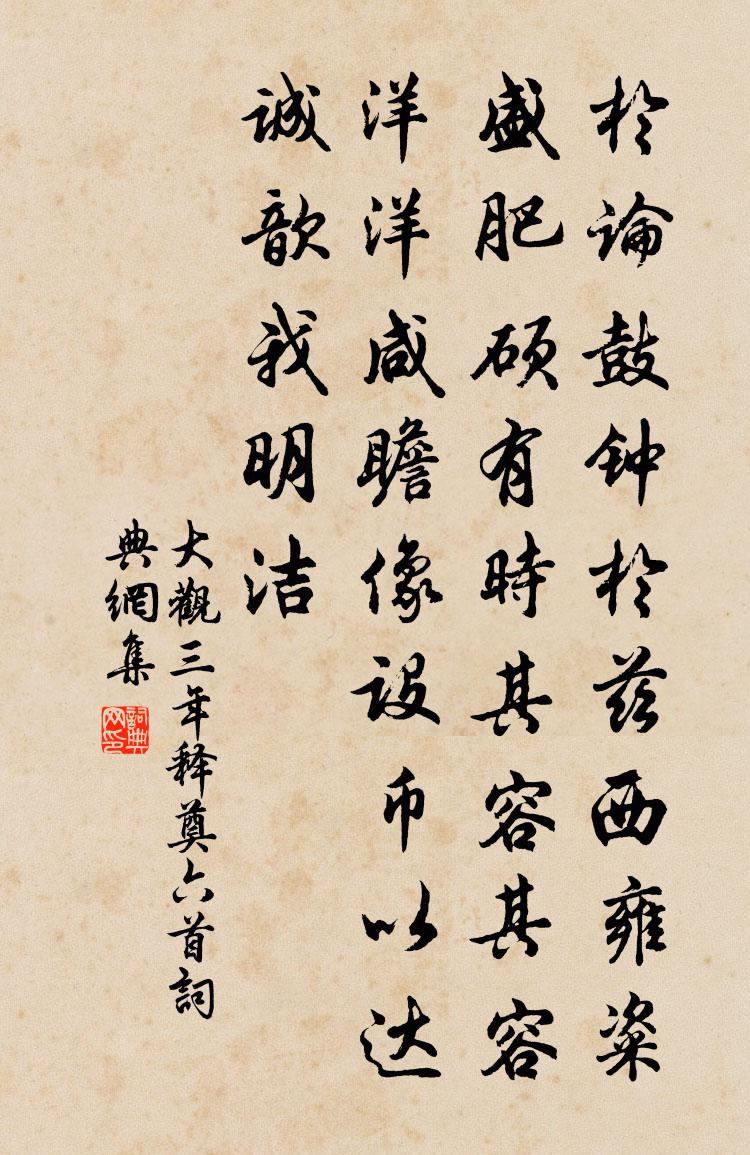 於論鼓钟於兹西雍粢
盛肥硕有時其容其容
洋洋咸瞻像设币以达
诚歆我明洁
大觀三年释奠六首詞
典網集
詞典网印